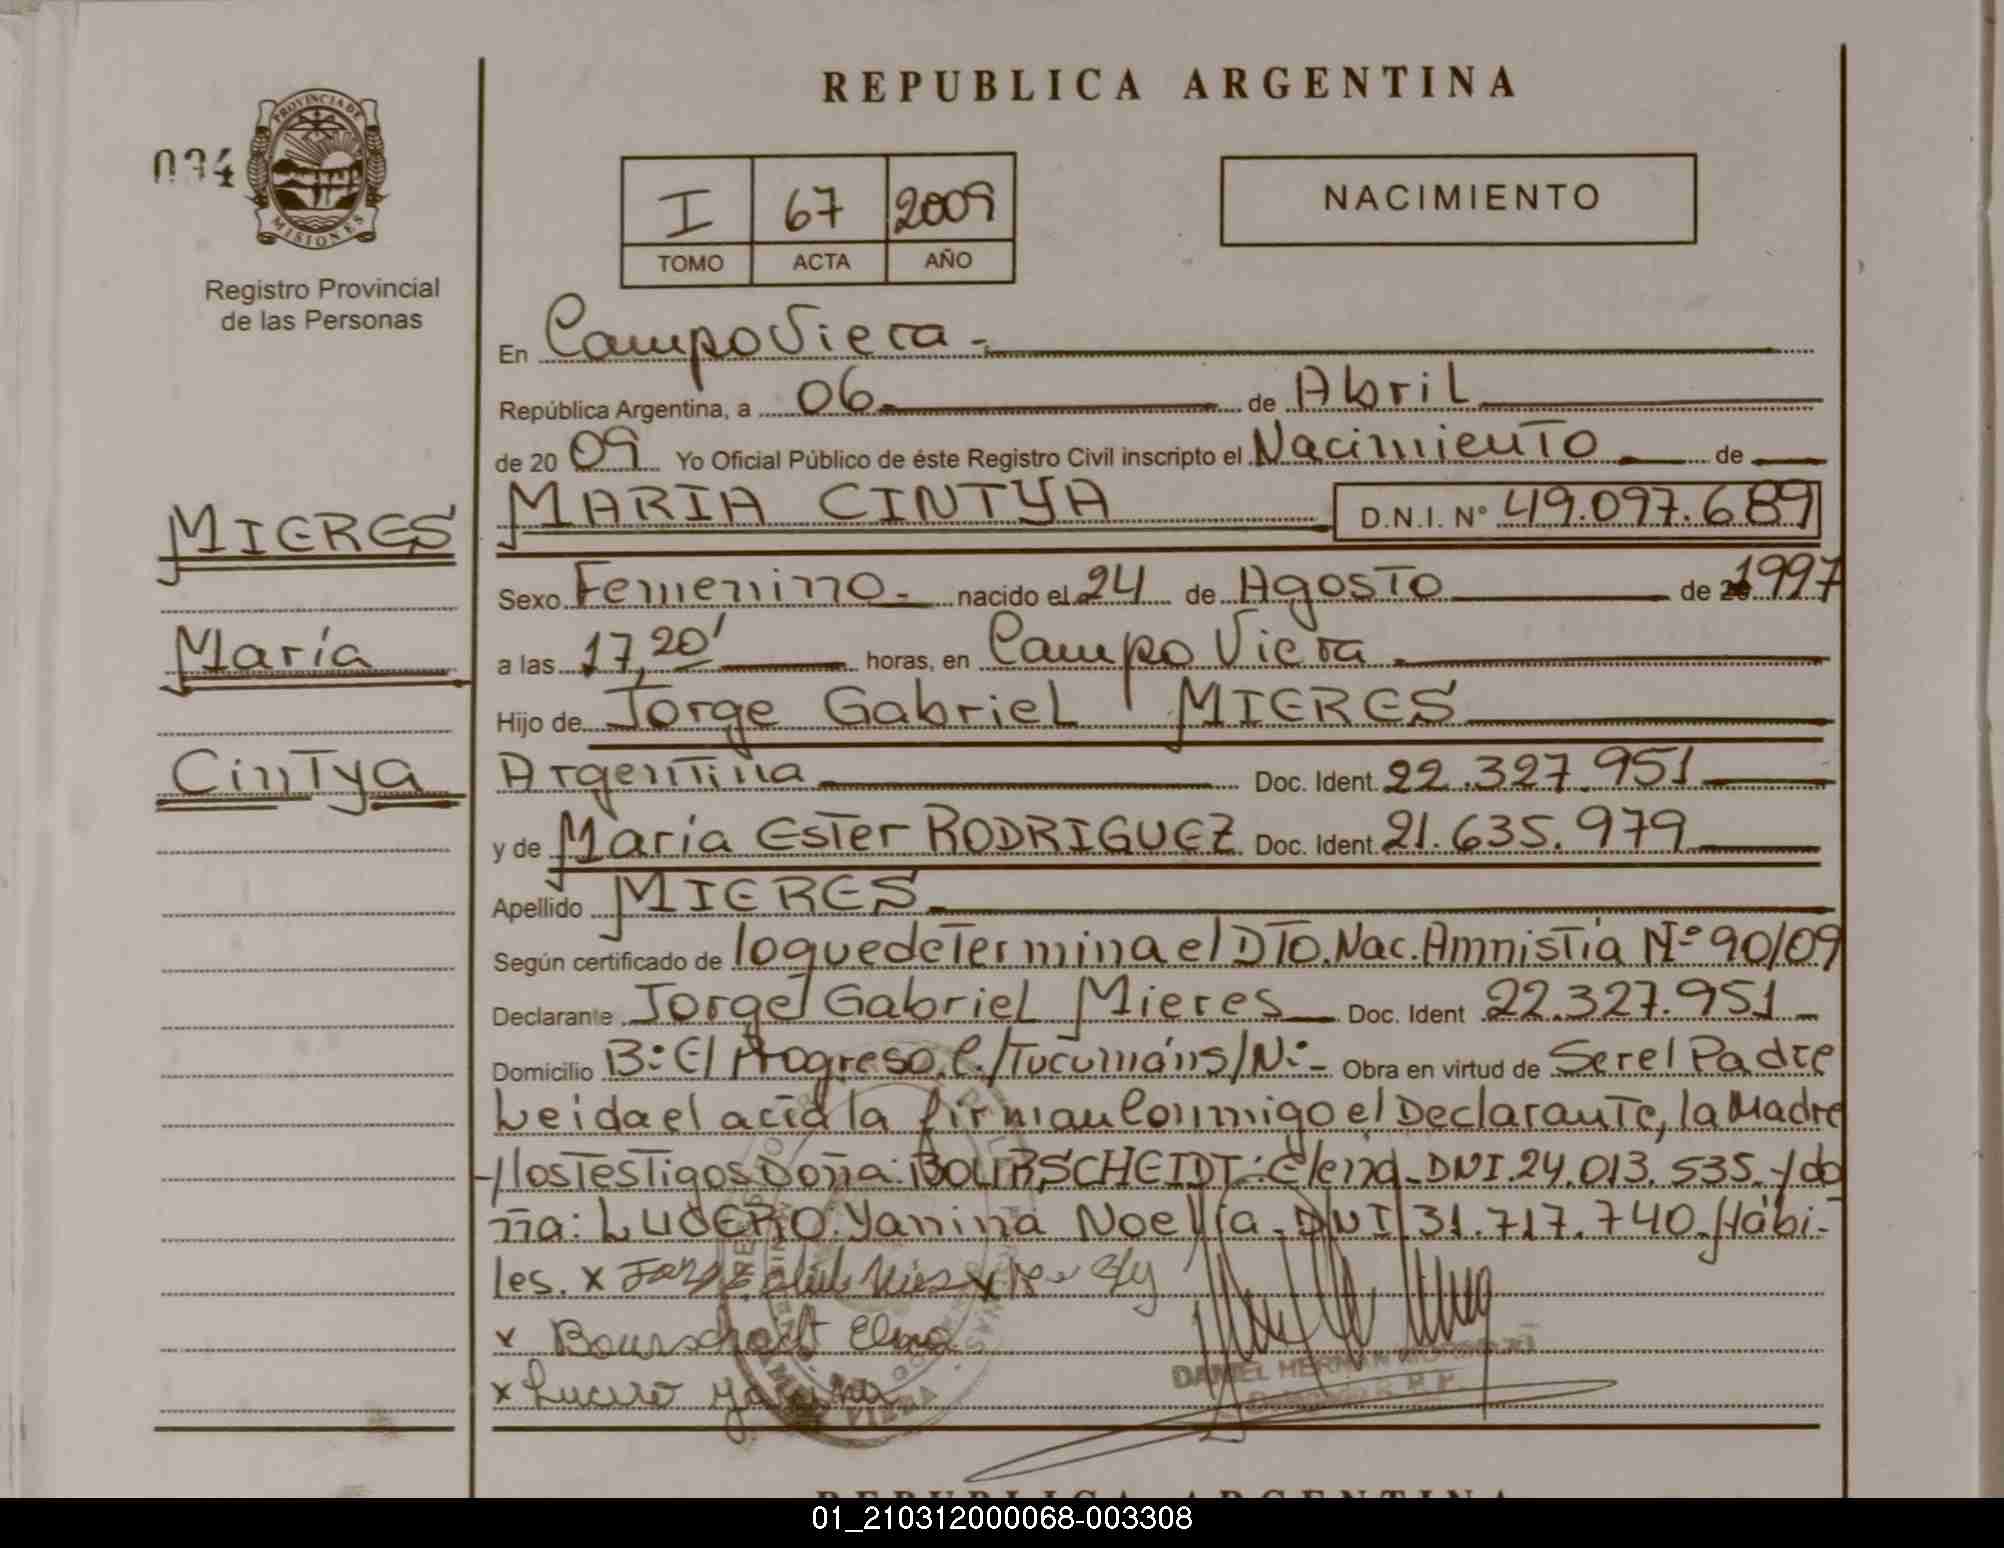 REPUBLICA ARGENTINA
074
PROVINCIA DE
MISIONES
Registro Provincial
de las Personas
I 67 2009
TOMO ACTA AÑO
NACIMIENTO
En Campo Viera -
República Argentina, a 06 de Abril
de 20 09 Yo Oficial Público de éste Registro Civil inscripto el Nacimiento de
MIERES
María
Cintya
MARIA CINTYA D.N.I. N° 49.097.689
Sexo Femenino - nacido el 24 de Agosto de 1997
a las 17,20' horas, en Campo Viera
Hijo de Jorge Gabriel MIERES
Argentina Doc. Ident. 22.327.951
y de María Ester RODRIGUEZ Doc. Ident. 21.635.979
Apellido MIERES
Según certificado de lo que determina el DTO. Nac. Amnistia N° 90/09
Declarante Jorge Gabriel Mieres Doc. Ident 22.327.951
Domicilio B: El Progreso. C./Tucumán S/N:- Obra en virtud de Ser el Padre
Leida el acta la firman Conmigo el Declarante, la Madre
y los Testigos Doña: BOURSCHEIDT: Elena - DNI. 24.013.535. y do
ña: LUCERO. Yanina Noelia - DNI 31.717.740. Hábi-
les. x
x Elena
x Lucero Yanina
DANIEL HERNAN
REPUBLICA ARGENTINA
01_210312000068-003308